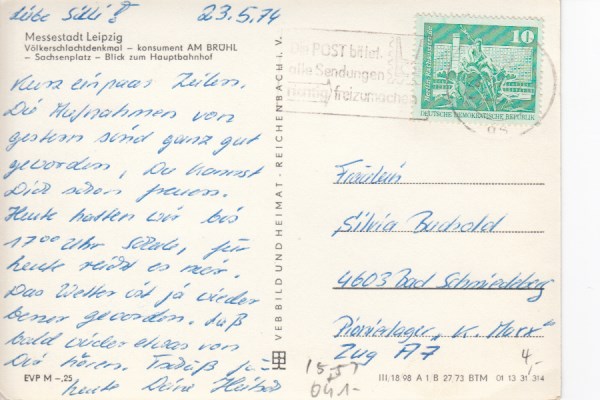 Liebe Silvi! 23.5.74
Messestadt Leipzig
Völkerschlachtdenkmal – konsument AM BRÜHL
– Sachsenplatz – Blick zum Hauptbahnhof
Kurz ein paar Zeilen.
Die Aufnahmen von
gestern sind ganz gut
geworden, Du kannst
Dich schon freuen.
Heute hatten wir bis
17⁰⁰ Uhr Schule, für
heute reicht es mir.
Das Wetter ist ja wieder
besser geworden. Laß
bald wieder etwas von
Dir hören. Tschüß für
heute Deine
EVP M –,25
VEB BILD UND HEIMAT · REICHENBACH i. V.
Die POST bittet,
alle Sendungen
richtig freizumachen
10
DEUTSCHE DEMOKRATISCHE REPUBLIK
Fräulein
Silvia Buchold
4603 Bad Schmiedeberg
Pionierlager „K. Marx"
Zug A7
4,-
III/18 98 A 1 B 27 73 BTM 01 13 31 314